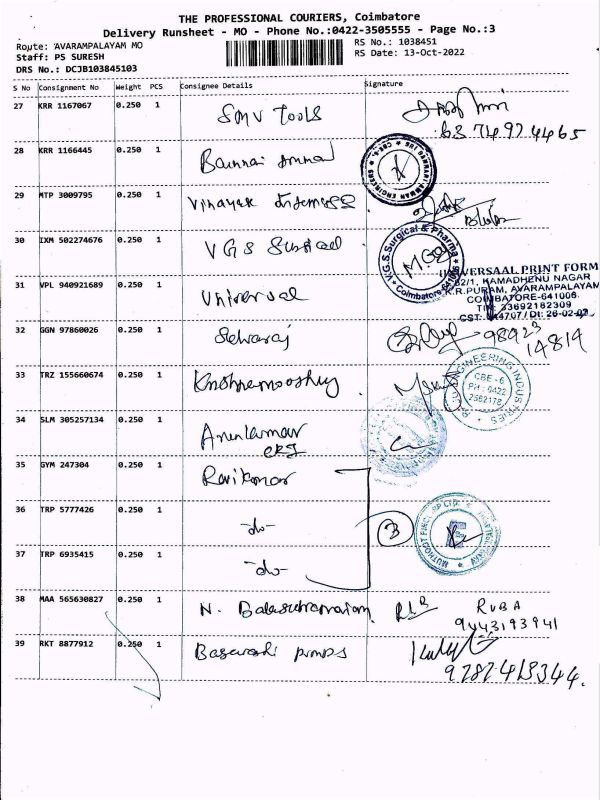 THE PROFESSIONAL COURIERS, Coimbatore
Delivery Runsheet - MO - Phone No.:0422-3505555 - Page No.:3
Route: AVARAMPALAYAM MO
RS No.: 1038451
Staff: PS SURESH
RS Date: 13-Oct-2022
DRS No.: DCJB103845103
S No Consignment No Weight PCS Consignee Details Signature
27 KRR 1167067 0.250 1 SMV Tools
63 74974465
28 KRR 1166445 0.250 1
29 MTP 3009795 0.250 1 Vinayak
30 IXM 502274676 0.250 1 V.G.S Surgical
V.G.S.Surgical & Pharma
Coimbatore
UNIVERSAAL PRINT FORM
62/1, KAMADHENU NAGAR
K.R.PURAM, AVARAMPALAYAM
COIMBATORE-641006
TIN: 33692162309
31 VPL 940921689 0.250 1 Universal
32 GGN 97860026 0.250 1 Selvaraj
98923
14814
33 TRZ 155660674 0.250 1 Krishnamoorthy
ENGINEERING INDUSTRIES
CBE - 6
PH : 0422
2562178
34 SLM 305257134 0.250 1 Arunkumar
35 GYM 247304 0.250 1 Ravikumar
36 TRP 5777426 0.250 1 -do-
3
MUTHOOT FINCORP LTD
37 TRP 6935415 0.250 1 -do-
38 MAA 565630827 0.250 1 N. Balasubramaniam
RUBA
9443193941
39 RKT 8877912 0.250 1 Pumps
9787413344.